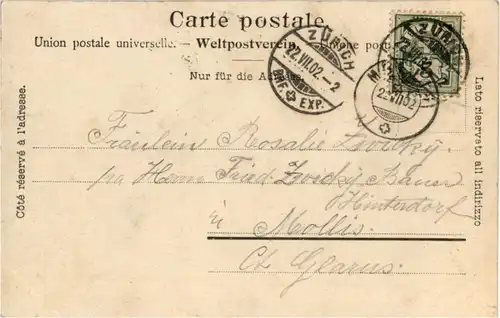 Carte postale.
Union postale universelle. – Weltpostverein.
Nur für die Adresse.
ZÜRICH
27.VII.02.–2
BRF. EXP.
ZÜRICH
27.VII.02
Côté réservé à l'adresse.
Lato riservato all indirizzo
Fräulein Rosalie Zwicky.
pa Herrn Frid. Zwicky Bauer
Hinterdorf
in
Mollis
Ct. Glarus.